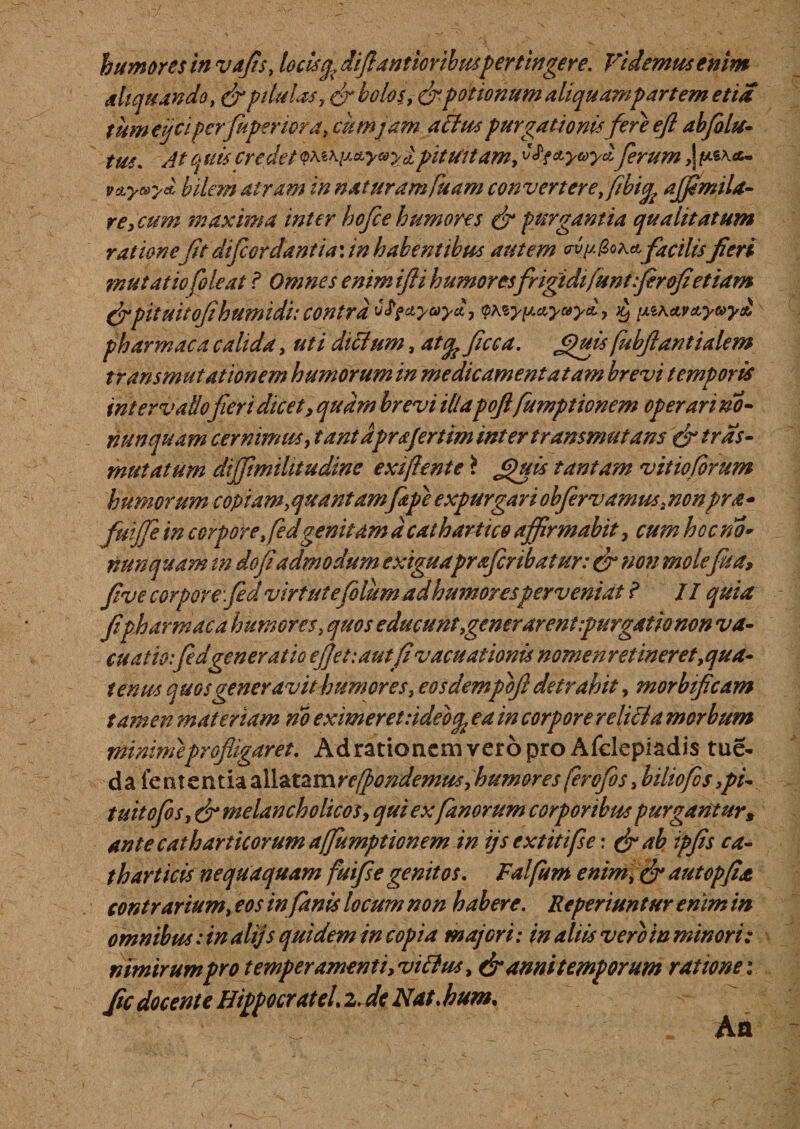 humores in vasis, locisq; distantioribus pertingere. Videmus enim
aliquando, & pilulas, & bolos, & potionum aliquam partem etiā
tum eijci per superiora, cùm jam actus purgationis ferè est absolu-
tus. At quis credet φλεγμαγωγὰ pituitam, ὑδραγωγὰ serum, μελα-
ναγωγὰ bilem atram in naturam suam convertere, sibiq; assimila-
re, cum maxima inter hosce humores & purgantia qualitatum
ratione sit discordantia: in habentibus autem σύμβολα facilis fieri
mutatio soleat? Omnes enim isti humores frigidi sunt: serosi etiam
& pituitosi humidi: contrà ὑδραγωγὰ, φλεγμαγωγὰ, ϗ μελαναγωγὰ
pharmaca calida, uti dictum, atq; sicca. Quis substantialem
transmutationem humorum in medicamentatam brevi temporis
intervallo fieri dicet, quàm brevi illa post sumptionem operari nō-
nunquam cernimus, tantâ præsertim inter transmutans & trās-
mutatum dissimilitudine existente? Quis tantam vitiosorum
humorum copiam, quantam sæpè expurgari observamus, non præ-
fuisse in corpore, sed genitam à cathartico affirmabit, cum hoc nō-
nunquam in dosi admodum exigua præscribatur: & non mole sua,
sive corpore: sed virtute solùm ad humores perveniat? II quia
si pharmaca humores, quos educunt, generarent: purgatio non va-
cuatio: sed generatio esset: aut si vacuationis nomen retineret, qua-
tenus quos generavit humores, eosdem pòst detrahit, morbificam
tamen materiam nō eximeret: ideoq; ea in corpore relicta morbum
minimè profligaret. Ad rationem verò pro Asclepiadis tuē-
da sententia allatam respondemus, humores serosos, biliosos, pi-
tuitosos, & melancholicos, qui ex sanorum corporibus purgantur,
ante catharticorum assumptionem in ijs extitisse: & ab ipsis ca-
tharticis nequaquam fuisse genitos. Falsum enim, & autopsiæ
contrarium, eos in sanis locum non habere. Reperiuntur enim in
omnibus: in alijs quidem in copia majori: in aliis verò in minori:
nimirum pro temperamenti, victus, & anni temporum ratione:
sic docente Hippocrate l. 2. de Nat. hum.
An